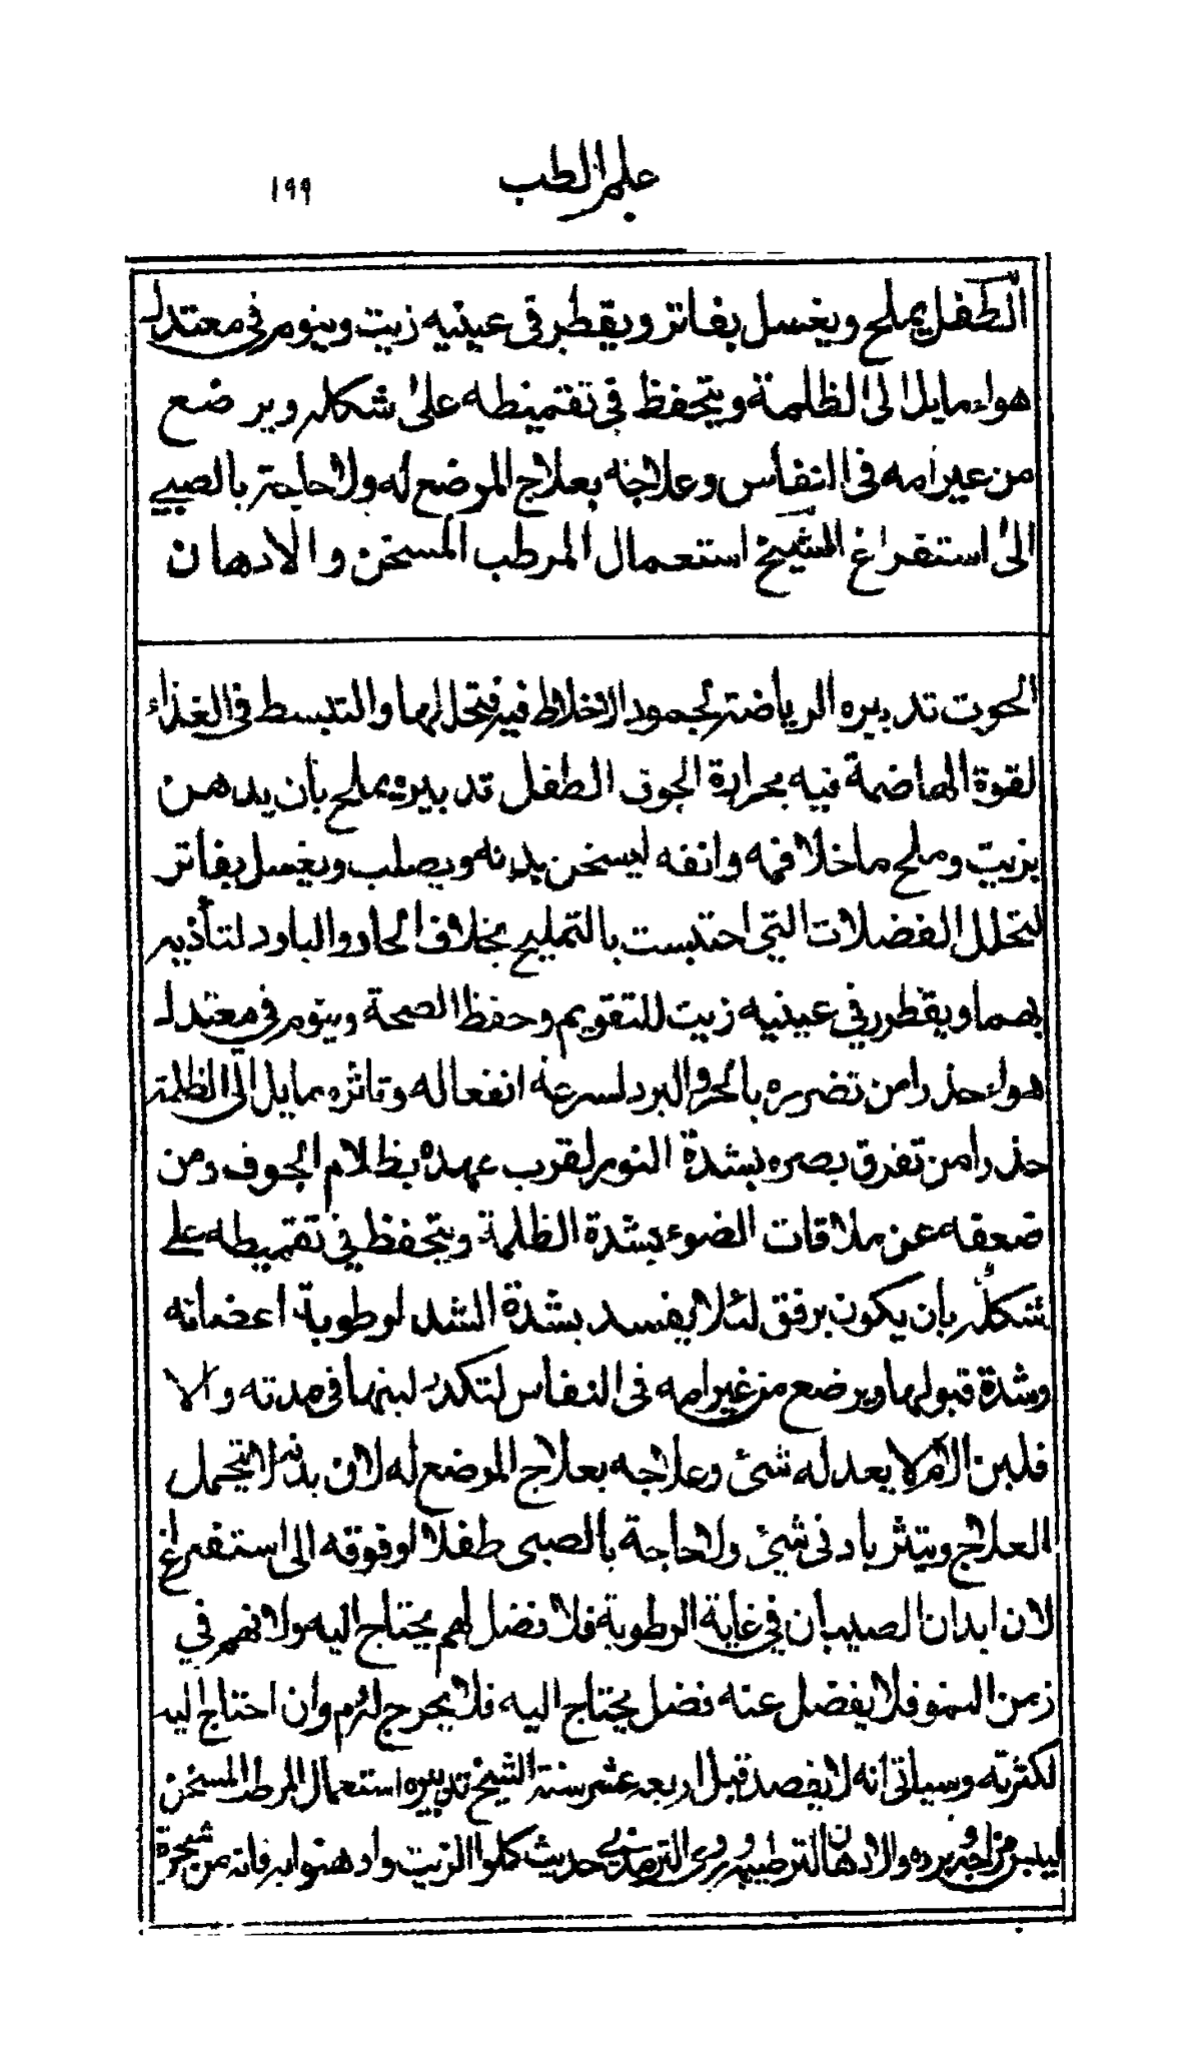 علم الطب
١٩٩
الطفل يملح ويغسل بفاتر ويقطر في عينيه زيت وينوم في معتدل
هواء مايل الى الظلمة ويتحفظ في تقميطه على شكله ويرضع
من غير امه في النفاس وعلاجه بعلاج المرضع له ولا حاجة بالصبي
الى استفراغ الشيخ استعمال المرطب المسخن والادهان
الحوت تدبيره الرياضة لجمود الاخلاط فيه فتحللها والتبسط في الغذاء
لقوة الهاضمة فيه بحرارة الجوف الطفل تدبيره يملح بأن يدهن
بزيت وملح ما خلا فمه وانفه ليسخن بدنه ويصلب ويغسل بفاتر
لتحلل الفضلات التي احتبست بالتمليح بخلاف الحار والبارد لتأذيه
بهما ويقطر في عينيه زيت للتقويم وحفظ الصحة وينوم في معتدل
هواء حذرا من تضرره بالحر والبرد لسرعة انفعاله وتاثره مايل الى الظلمة
حذرا من تفرق بصره بشدة النور لقرب عهده بظلام الجوف ومن
ضعفه عن ملاقات الضوء بشدة الظلمة ويتحفظ في تقميطه على
شكله بان يكون برفق لئلا يفسد بشدة الشد لرطوبة اعضائه
وشدة قبولها ويرضع من غير امه في النفاس لتكدر لبنها في مدته والا
فلبن الام لا يعدله شئ وعلاجه بعلاج المرضع له لان بدنه لا يتحمل
العلاج ويتثر بادنى شئ ولا حاجة بالصبى طفلا او فوقه الى استفراغ
لان ابدان الصبيان في غاية الرطوبة فلا فضل لهم يحتاج اليه ولانهم في
زمن النمو فلا يفضل عنه فضل يحتاج اليه فلا يخرج لئرم وان احتاج اليه
لكثرته وسياتى انه لا يفصد قبل اربعه عشر سنة الشيخ تدبيره استعمال المرطب المسخن
ليبس مزاجه وبرده والادهان لترطيبه وروى الترمذي حديث كلوا الزيت وادهنوا به فانه من شجرة